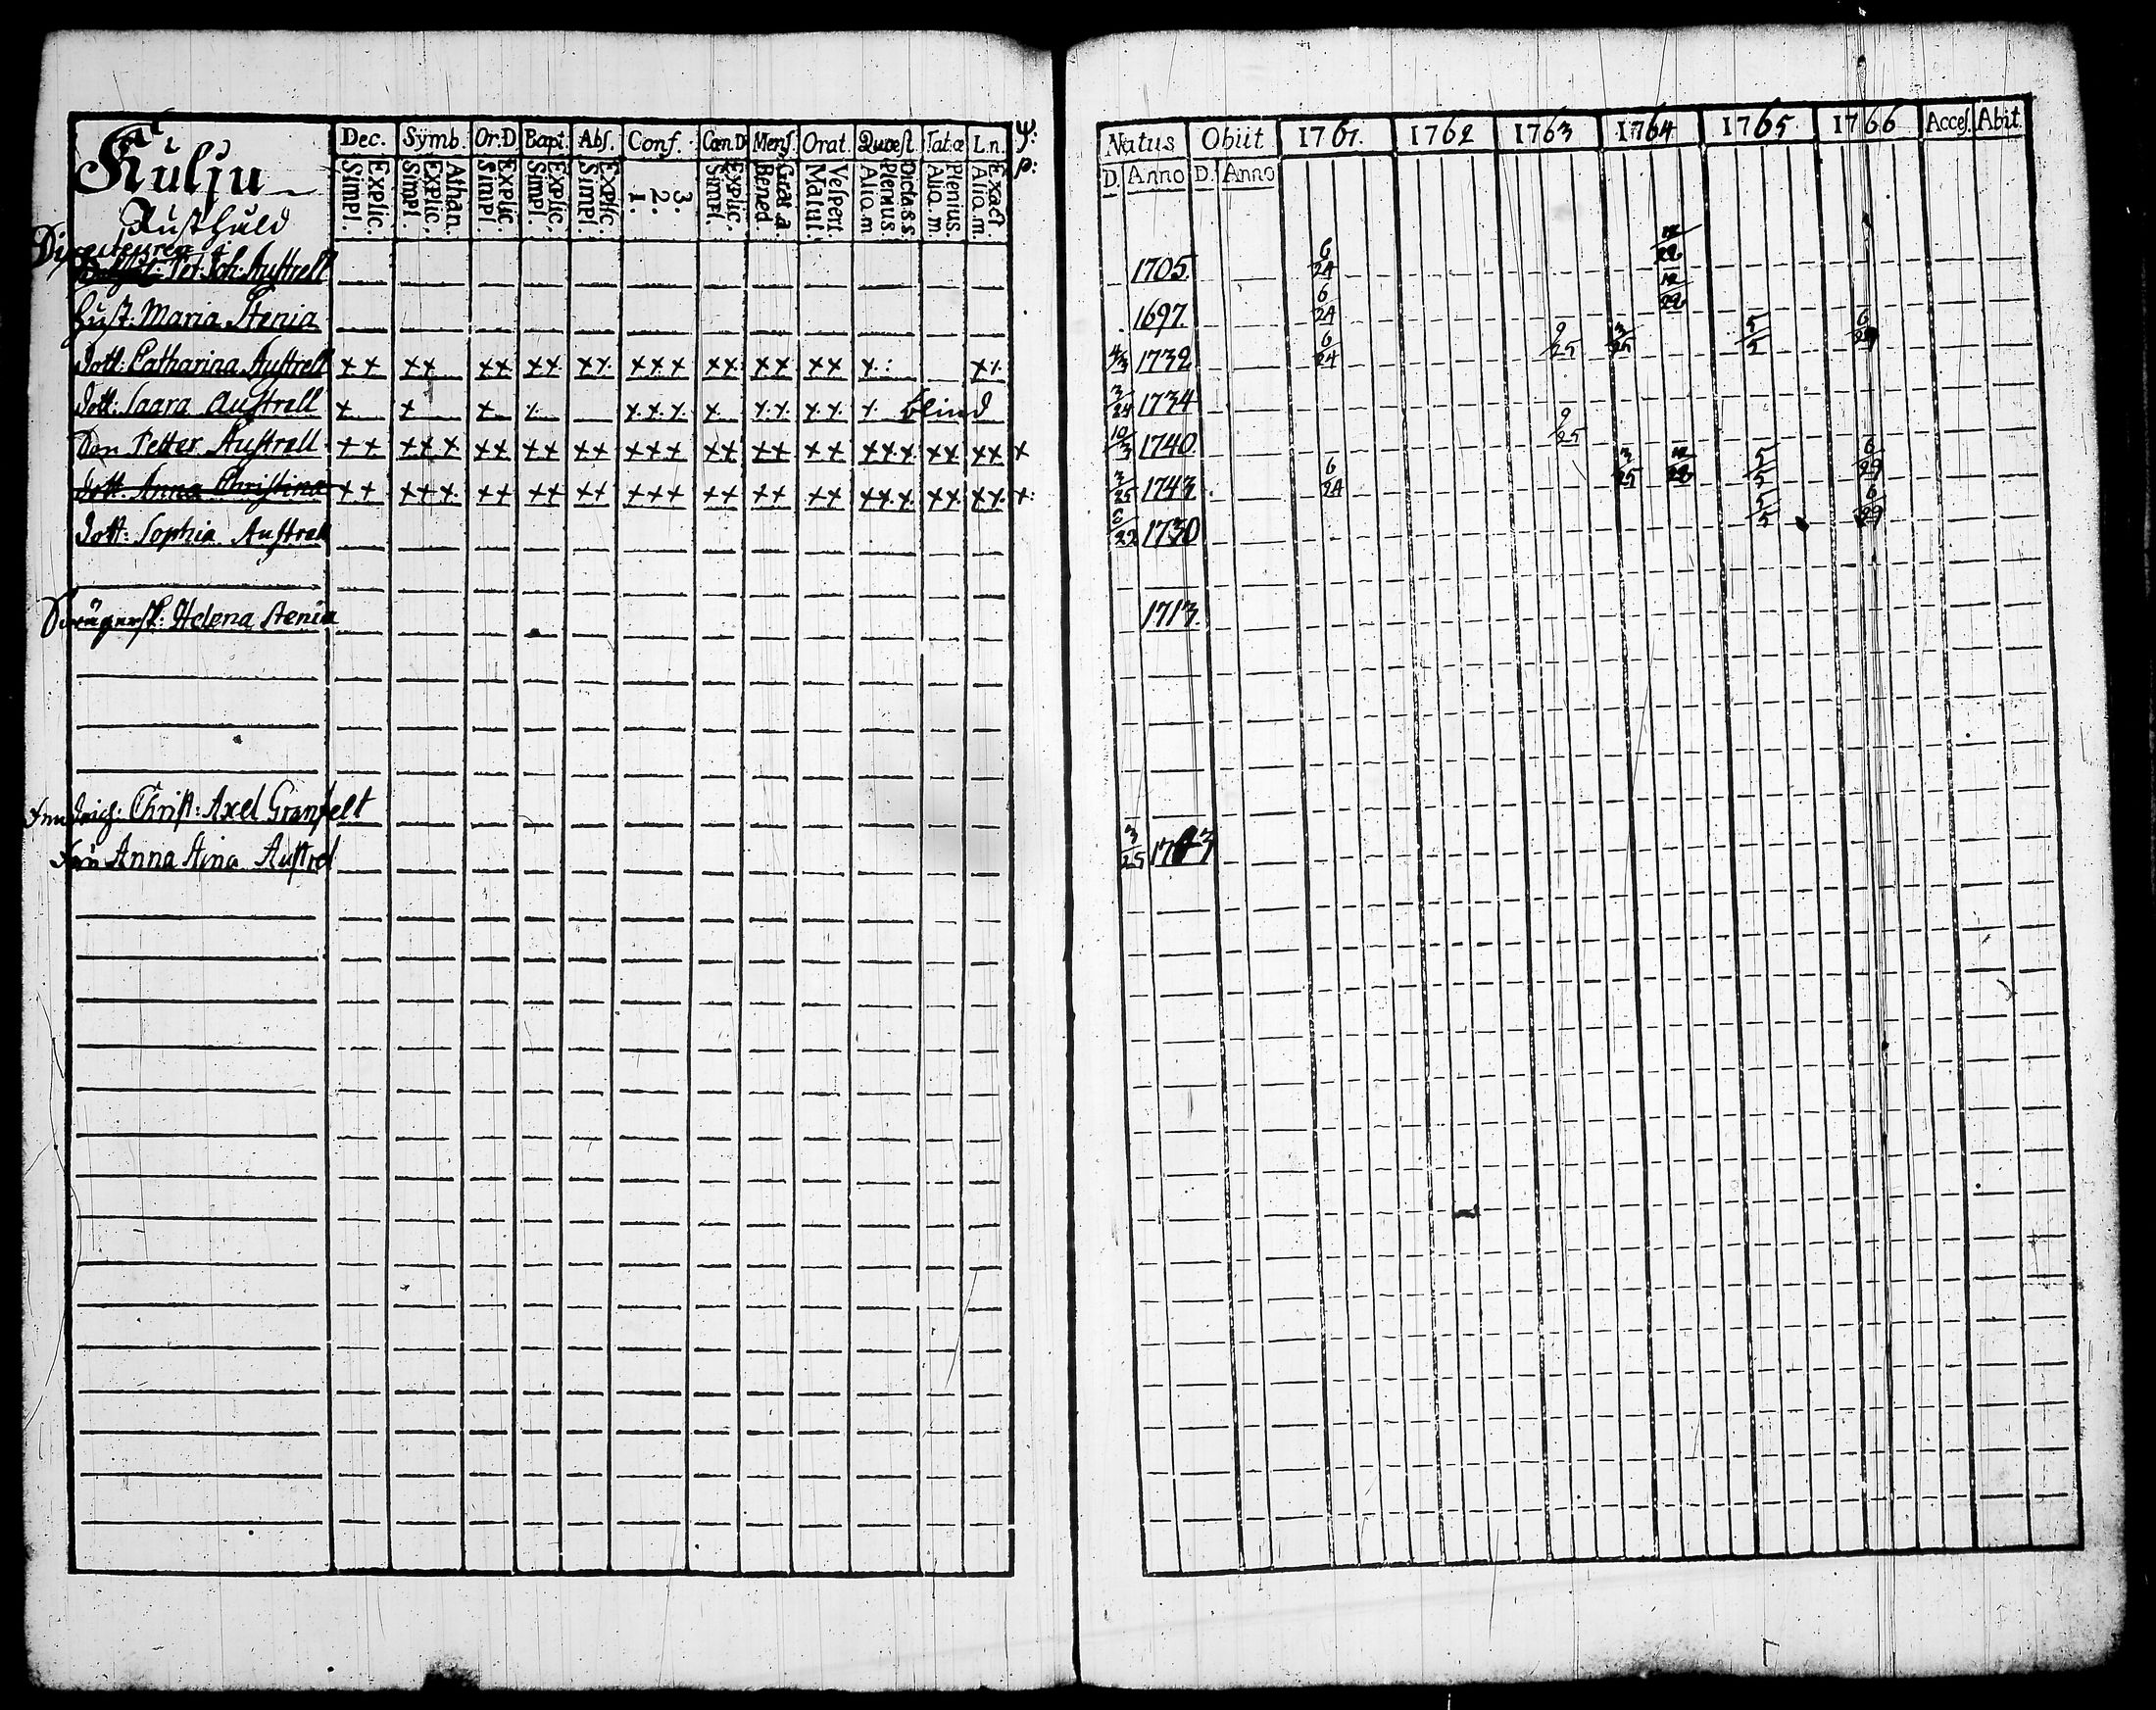 Kulju
Rusthåld
Dec. Symb. Or.D. Bapt. Abs. Conf. Cœn.D. Mens. Orat. Quæst. Tat.æ L.n. ψ:
Explic. Simpl. Athan. Explic. Simpl. Explic. Simpl. Explic. Simpl. Explic. Simpl. 3. 2. 1. Explic. Simpl. Grat. a. Bened. Vespert. Matut. Dicta s.s. Plenius. Aliq.m Plenius. Aliq.m Exact. Aliq.m. p:
Natus Obiit 1761. 1762 1763 1764 1765 1766 Acces. Abit
D. Anno D. Anno
Directeuren
Pet: Joh: Austrell 1705 6/24 12/22
hust: Maria Stenia 1697. 6/24 12/22
dott: Catharina Austrell ++ ++ ++ ++ ++ +++ ++ ++ ++ +: +: 4/3 1732 6/24 9/25 3/25 5/5 6/29
dott: Saara Austrell + + + + +++ + ++ ++ + blind 3/24 1734
Son Petter Austrell ++ +++ ++ ++ ++ +++ ++ ++ ++ +++ ++ ++ + 10/3 1740 9/25
dott: Anna Christina ++ +++ ++ ++ ++ +++ ++ ++ ++ +++ ++ ++ +: 3/25 1743 6/24 3/25 12/22 5/5 6/29
dott: Sophia Austrell 6/22 1730 5/5 6/29
Swägersk: Helena Stenia 1713.
Christ: Axel Granfelt
Fru Anna Stina Austrel 3/25 1743